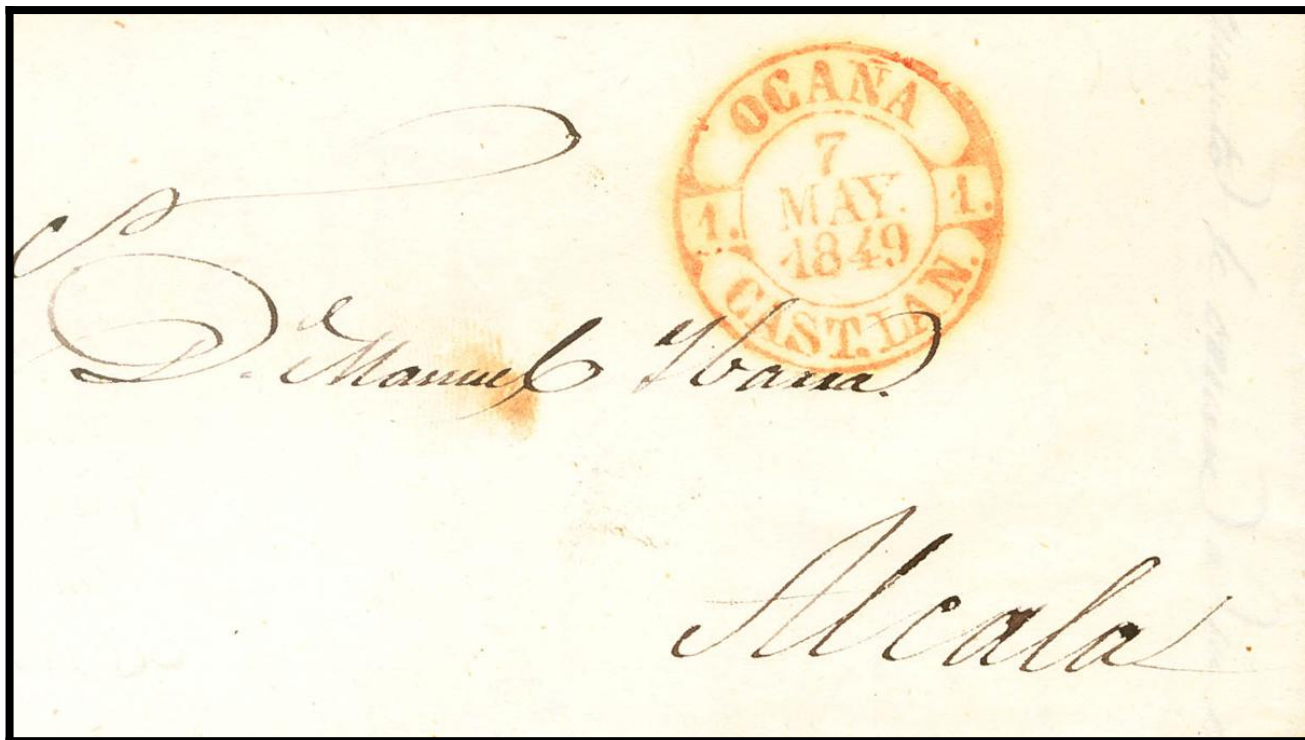 OCAÑA
7
MAY.
1849
1. 1.
CAST. LAN.
S
D. Manuel Ybarra.
Alcala